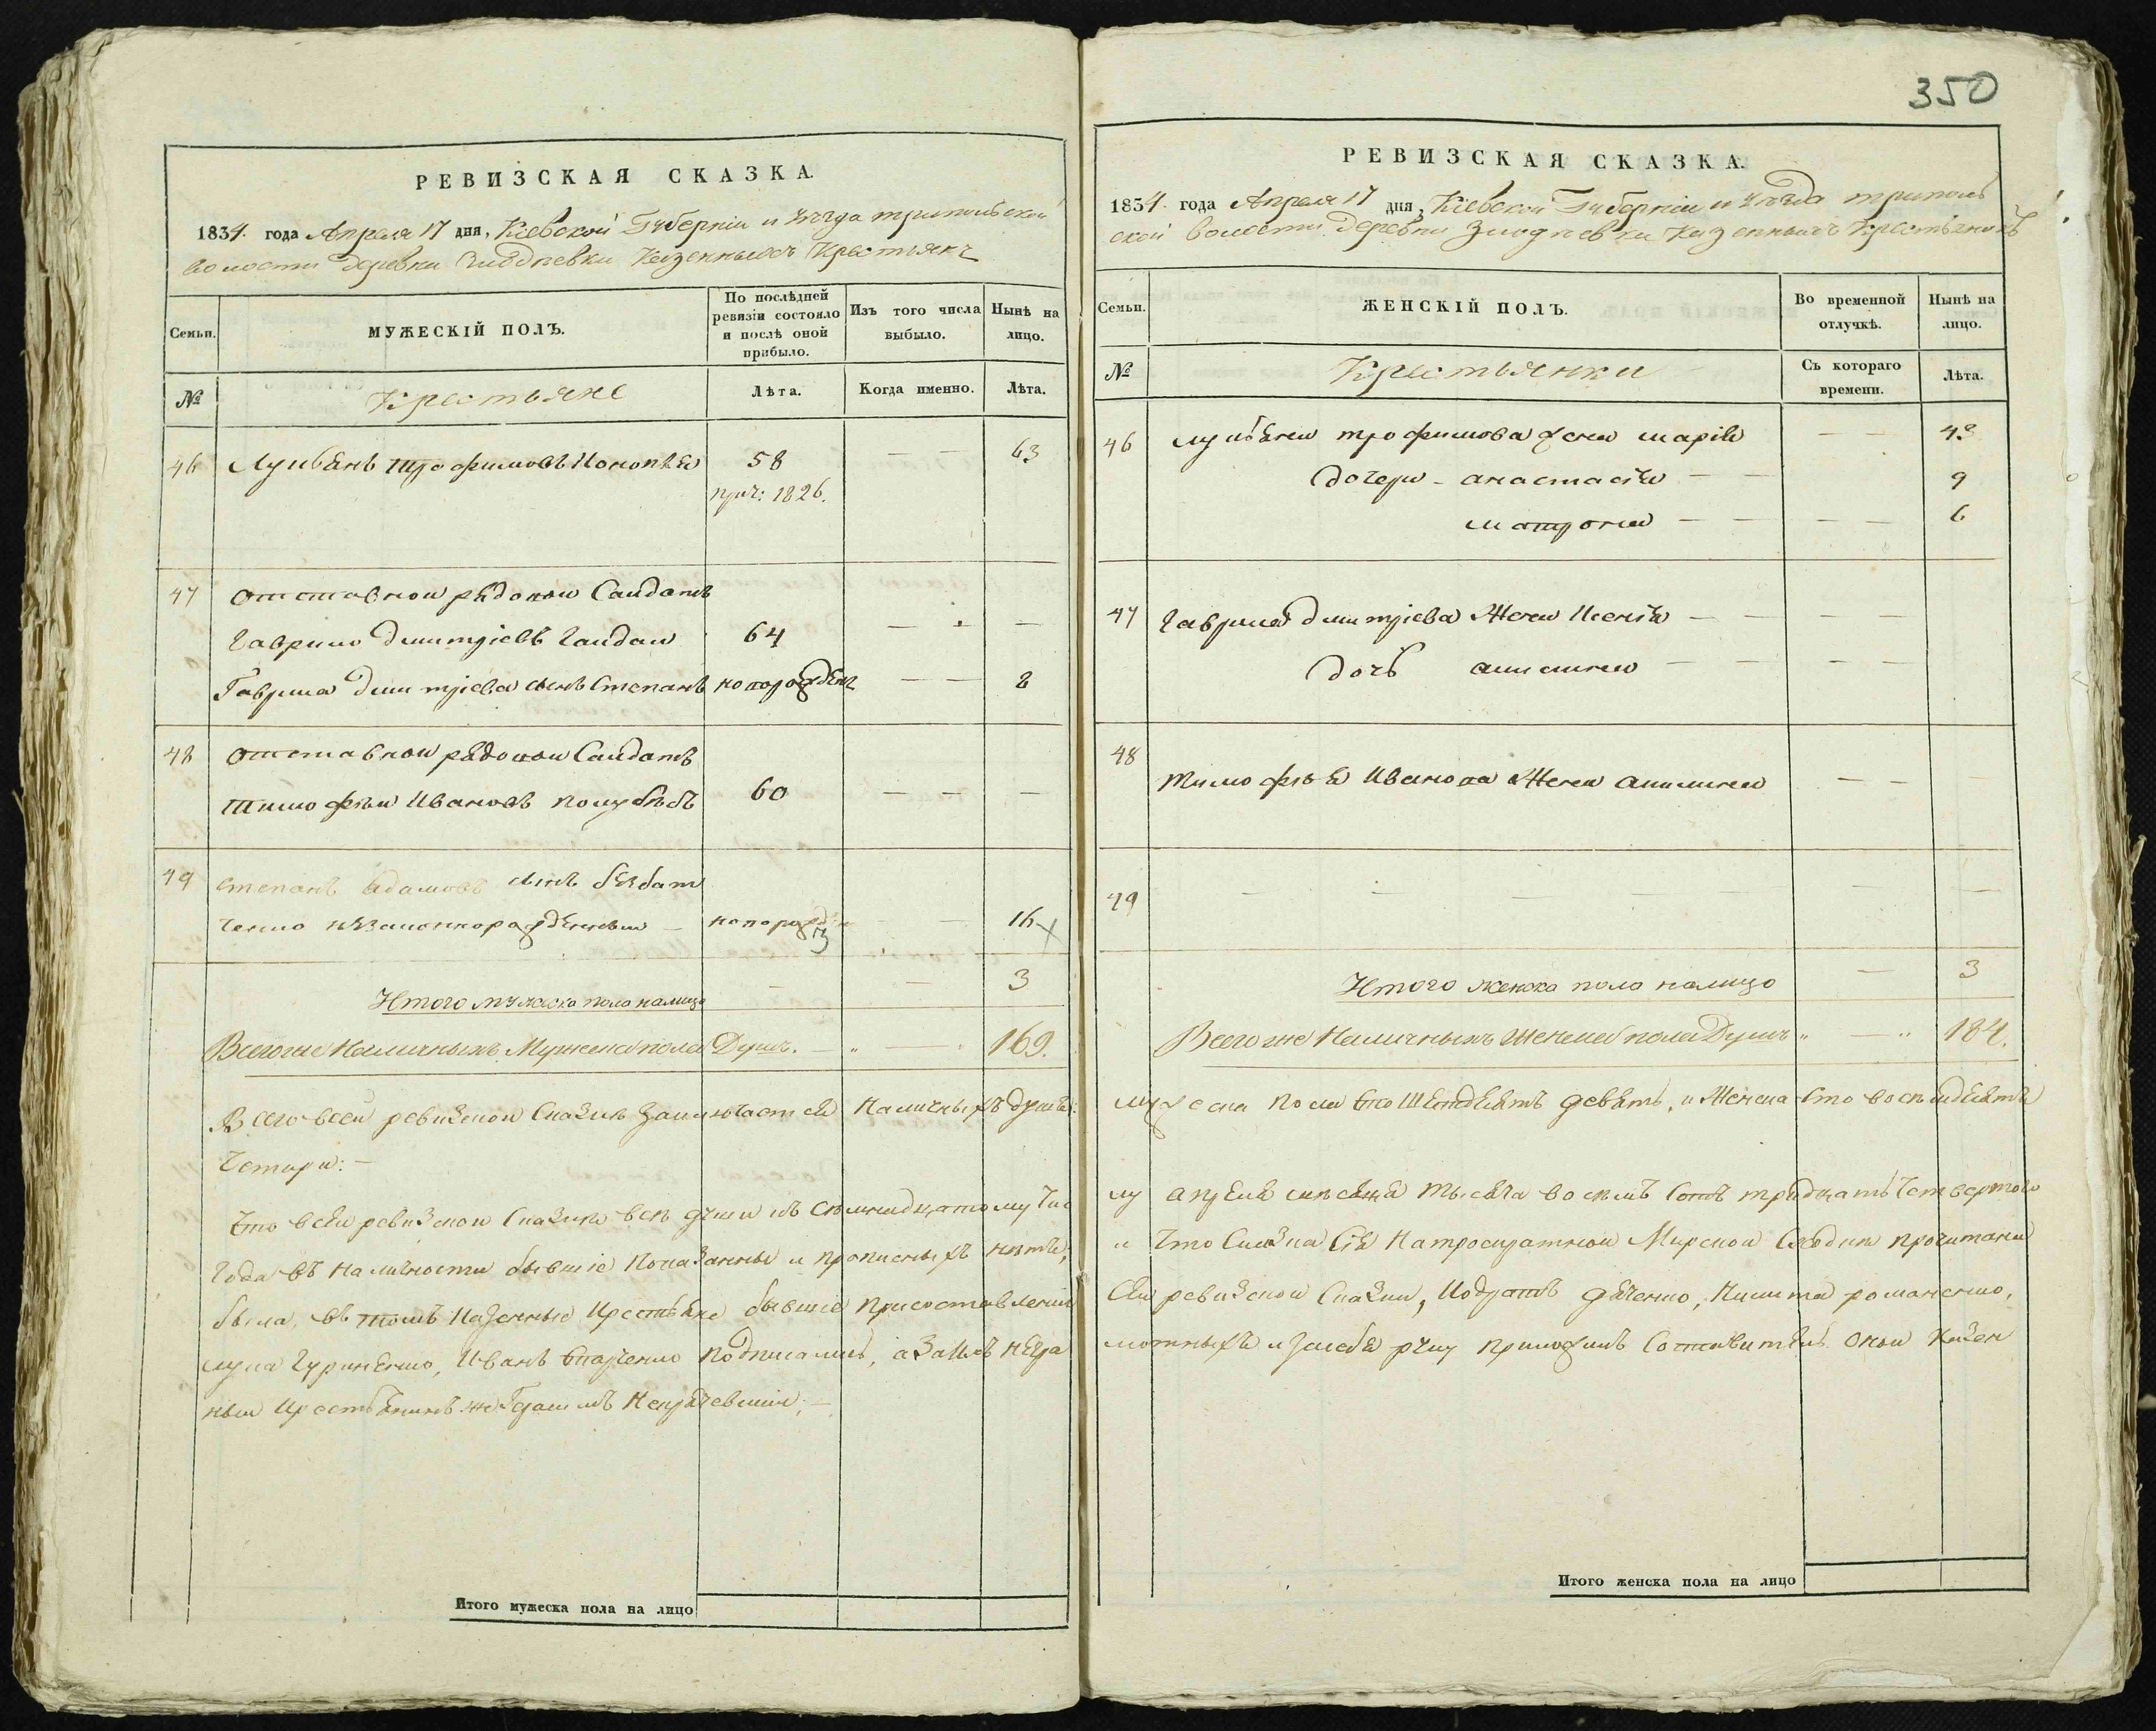 350
РЕВИЗСКАЯ СКАЗКА.
1834. года Апреля 17 дня, Кіевской Губерніи и уезда трипольской
волости деревни Злоднѣвки Казенныхъ Крестьянъ
Семьи.
МУЖЕСКІЙ ПОЛЪ.
По послѣдней ревизіи состояло и послѣ оной прибыло.
Изъ того числа выбыло.
Нынѣ на лицо.
№
Крестьяне
Лѣта.
Когда именно.
Лѣта.
46 Лукьянъ трофимовъ 58 — — 63
прич: 1826.
47 отставной рядовой Салдатъ
Гаврило дмитріевъ Гайдай 64 — — —
Гаврила дмитріева сынъ Степанъ новорожденъ — — 8
48 отставной рядовой Салдатъ
тимофѣй Ивановъ 60 — — —
49 степанъ адамовъ сынъ
ченко незаконнорожденный — новорожд: — 16
3
Итого мужеска пола налицо — — 3
Всего же Наличныхъ Мужеска пола Душъ. — " — 169.
Всего всей ревизской Сказки заключается Наличныхъ душъ:
Четыри: —
Что в сей ревизской Сказки всѣ души къ
Года въ наличности бывшіе показанны и прописныхъ нетъ,
была, въ томъ Казенные Крестьяне бывшіе при составленіи
лука Гуриненко, Иванъ подписались, а за ихъ негра
ный Крестьянинъ же
Итого мужеска пола на лицо
РЕВИЗСКАЯ СКАЗКА.
1834. года Апреля 17 дня, Кіевской Губерніи и уезда триполь
ской волости деревни Злоднѣвки Казенныхъ Крестьянокъ
Семьи.
ЖЕНСКІЙ ПОЛЪ.
Во временной отлучкѣ.
Нынѣ на лицо.
№
Крестьянки
Съ котораго времени.
Лѣта.
46 лукьяна трофимова жена марія — — 43
дочери - анастасія — — 9
матрона — — — — 6
47 Гаврила дмитріева Жена Ксенія — — — —
дочь акилина — — — —
48 тимофѣя Иванова Жена акилина — —
49 — — — — — —
Итого женска пола налицо — 3
Всего же Наличныхъ Женска пола Душъ " — " 184.
мужеска пола сто шестдесятъ девять, и Женска сто восемдесятъ
лу апреля мѣсяца тысяча восемъ сотъ тридцать четвертого
и что Сказка Сія Мирской Сходки прочитана
Сей ревизской Сказки, Кодратъ дяченко, Никита романенко,
мотныхъ и за себя руку приложилъ Составитель оной Казен
Итого женска пола на лицо